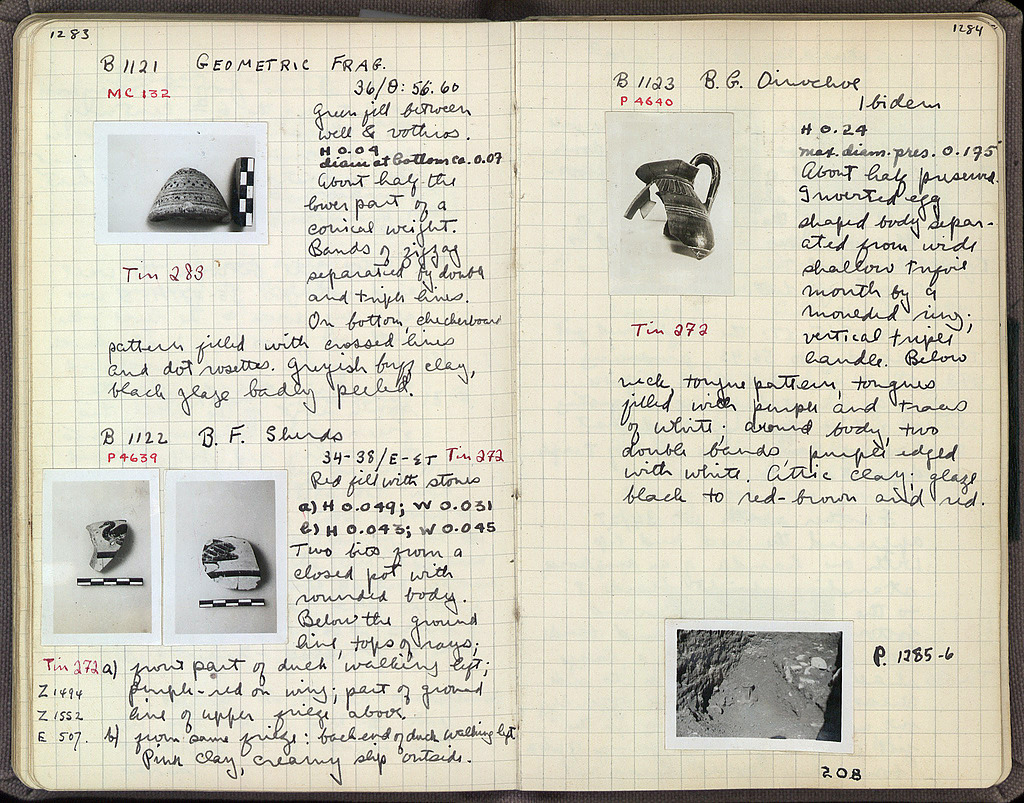 1283
B 1121 GEOMETRIC FRAG.
MC 132
36/Θ: 56.60
Green fill between
well & bothros.
H 0.04
diam at bottom ca. 0.07
About half the
lower part of a
conical weight.
Bands of zigzag
separated by double
and triple lines.
On bottom, checkerboard
Tin 283
pattern filled with crossed lines
and dot rosettes. Greyish buff clay,
black glaze badly peeled.
B 1122 B. F. Sherds
P 4639
34-38/E-ΣΤ Tin 272
Red fill with stones
a) H 0.049; W 0.031
b) H 0.043; W 0.045
Two bits from a
closed pot with
rounded body.
Below the ground
line, tops of rays;
Tin 272 a) front part of duck walking left;
Z 1494 purple-red on wing; part of ground
Z 1552 line of upper frieze above.
E 507. b) from same frieze: back end of duck walking left
Pink clay, creamy slip outside.
1284
B 1123 B. G. Oinochoe
P 4640
Ibidem
H 0.24
max. diam. pres. 0.175
About half preserved.
Inverted egg
shaped body separ-
ated from wide
shallow trefoil
mouth by a
moulded ring;
vertical triple
handle. Below
Tin 272
neck, tongue pattern, tongues
filled with purple and traces
of white; around body, two
double bands, purple edged
with white. Attic clay; glaze
black to red-brown and red.
P. 1285-6
208